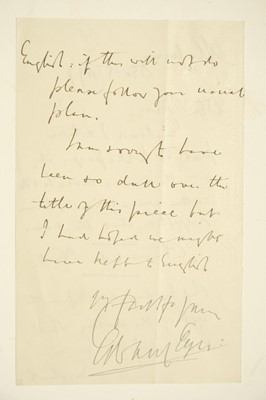 English, if this will not do
please follow your usual
plan.
I am sorry to have
been so dull over the
title of this piece but
I had hoped we might
have kept to English
Edward Elgar